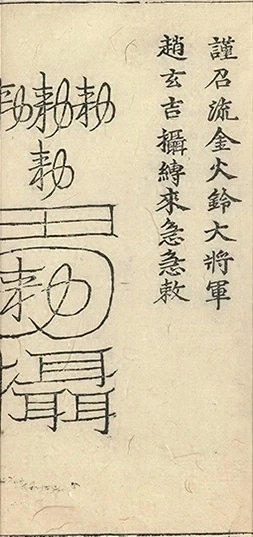 謹召流金火鈴大將軍
趙玄吉攝縳來急急敕
勅勅勅
勅
勅